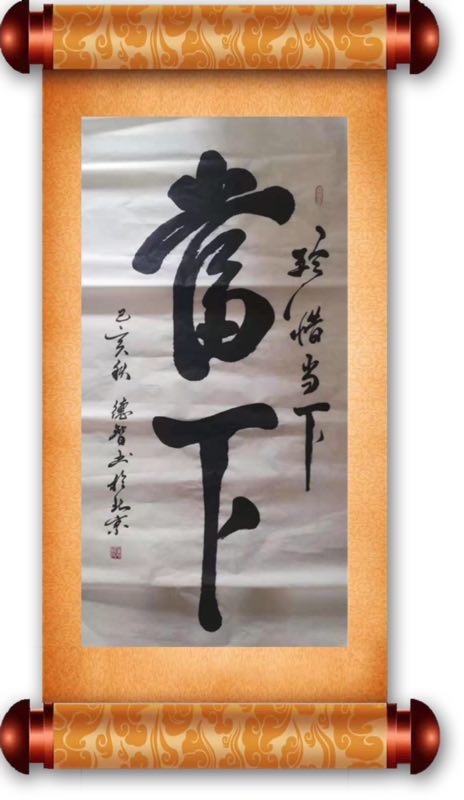 珍惜当下
當下
己亥秋 德智书於北京